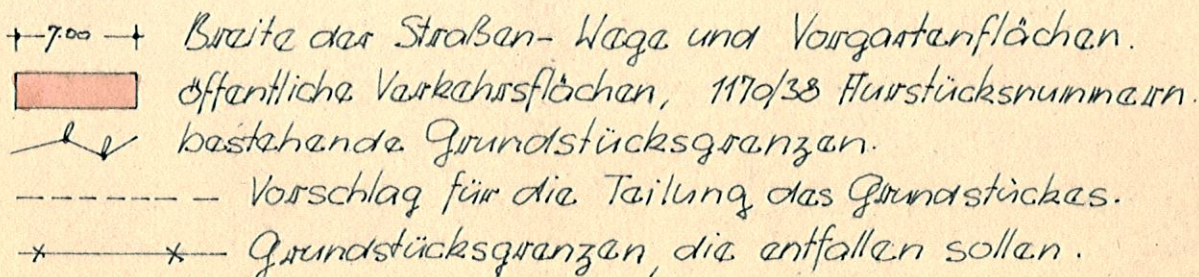 7.00 Breite der Straßen- Wege und Vorgartenflächen.
öffentliche Verkehrsflächen, 1170/38 Flurstücksnummern.
bestehende Grundstücksgrenzen.
Vorschlag für die Teilung des Grundstückes.
Grundstücksgrenzen, die entfallen sollen.